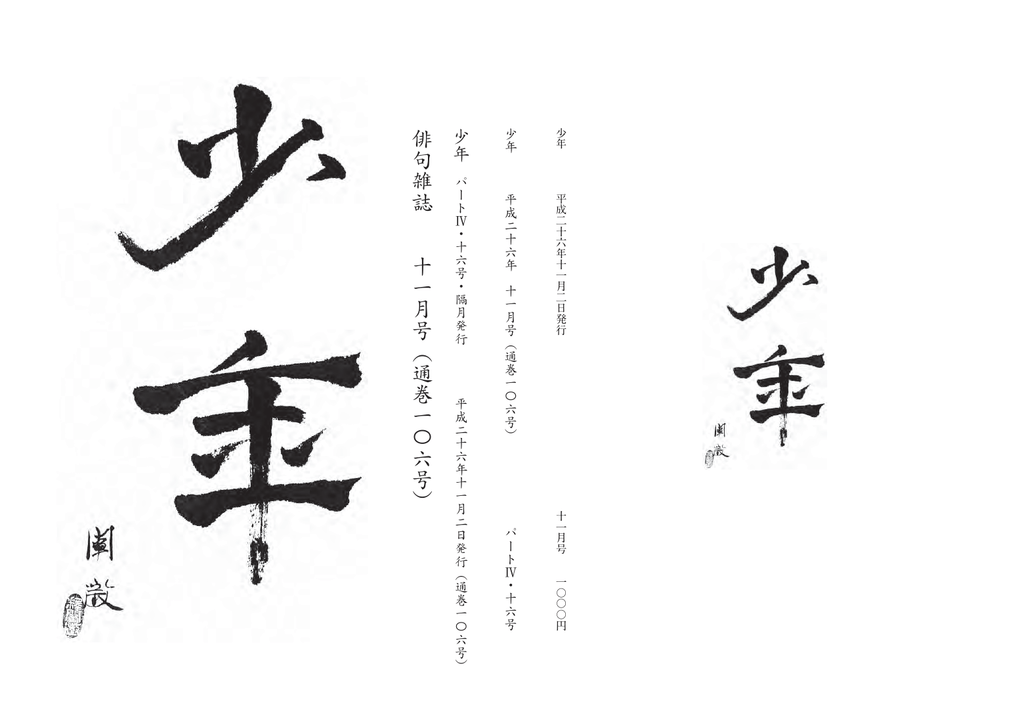 少年
少年　平成二十六年十一月二日発行　十一月号　一〇〇〇円
少年　平成二十六年　十一月号（通巻一〇六号）　パートⅣ・十六号
少年　パートⅣ・十六号・隔月発行　平成二十六年十一月二日発行（通巻一〇六号）
俳句雑誌　十一月号（通巻一〇六号）
少年